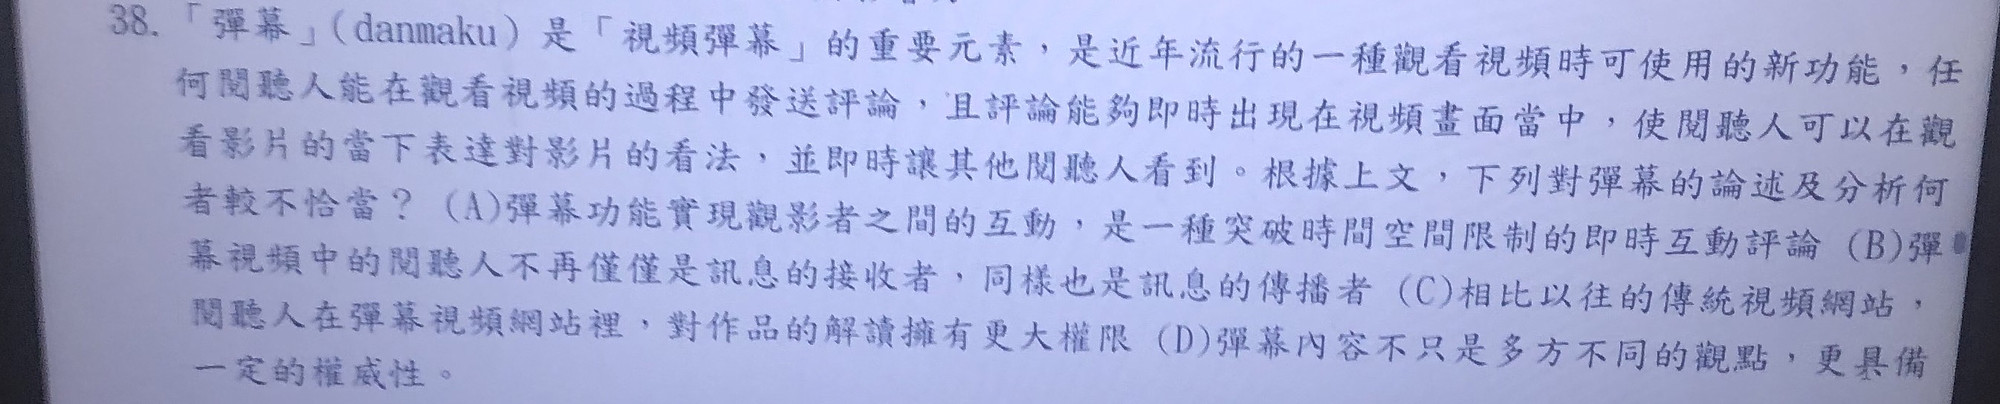 38. 「彈幕」(danmaku) 是「視頻彈幕」的重要元素，是近年流行的一種觀看視頻時可使用的新功能，任
何閱聽人能在觀看視頻的過程中發送評論，且評論能夠即時出現在視頻畫面當中，使閱聽人可以在觀
看影片的當下表達對影片的看法，並即時讓其他閱聽人看到。根據上文，下列對彈幕的論述及分析何
者較不恰當？ (A)彈幕功能實現觀影者之間的互動，是一種突破時間空間限制的即時互動評論 (B)彈
幕視頻中的閱聽人不再僅僅是訊息的接收者，同樣也是訊息的傳播者 (C)相比以往的傳統視頻網站，
閱聽人在彈幕視頻網站裡，對作品的解讀擁有更大權限 (D)彈幕內容不只是多方不同的觀點，更具備
一定的權威性。